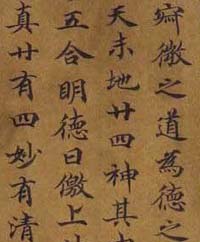 微之道為德之
天未地廿四神其
五合明德日儌上
真廿有四妙有清